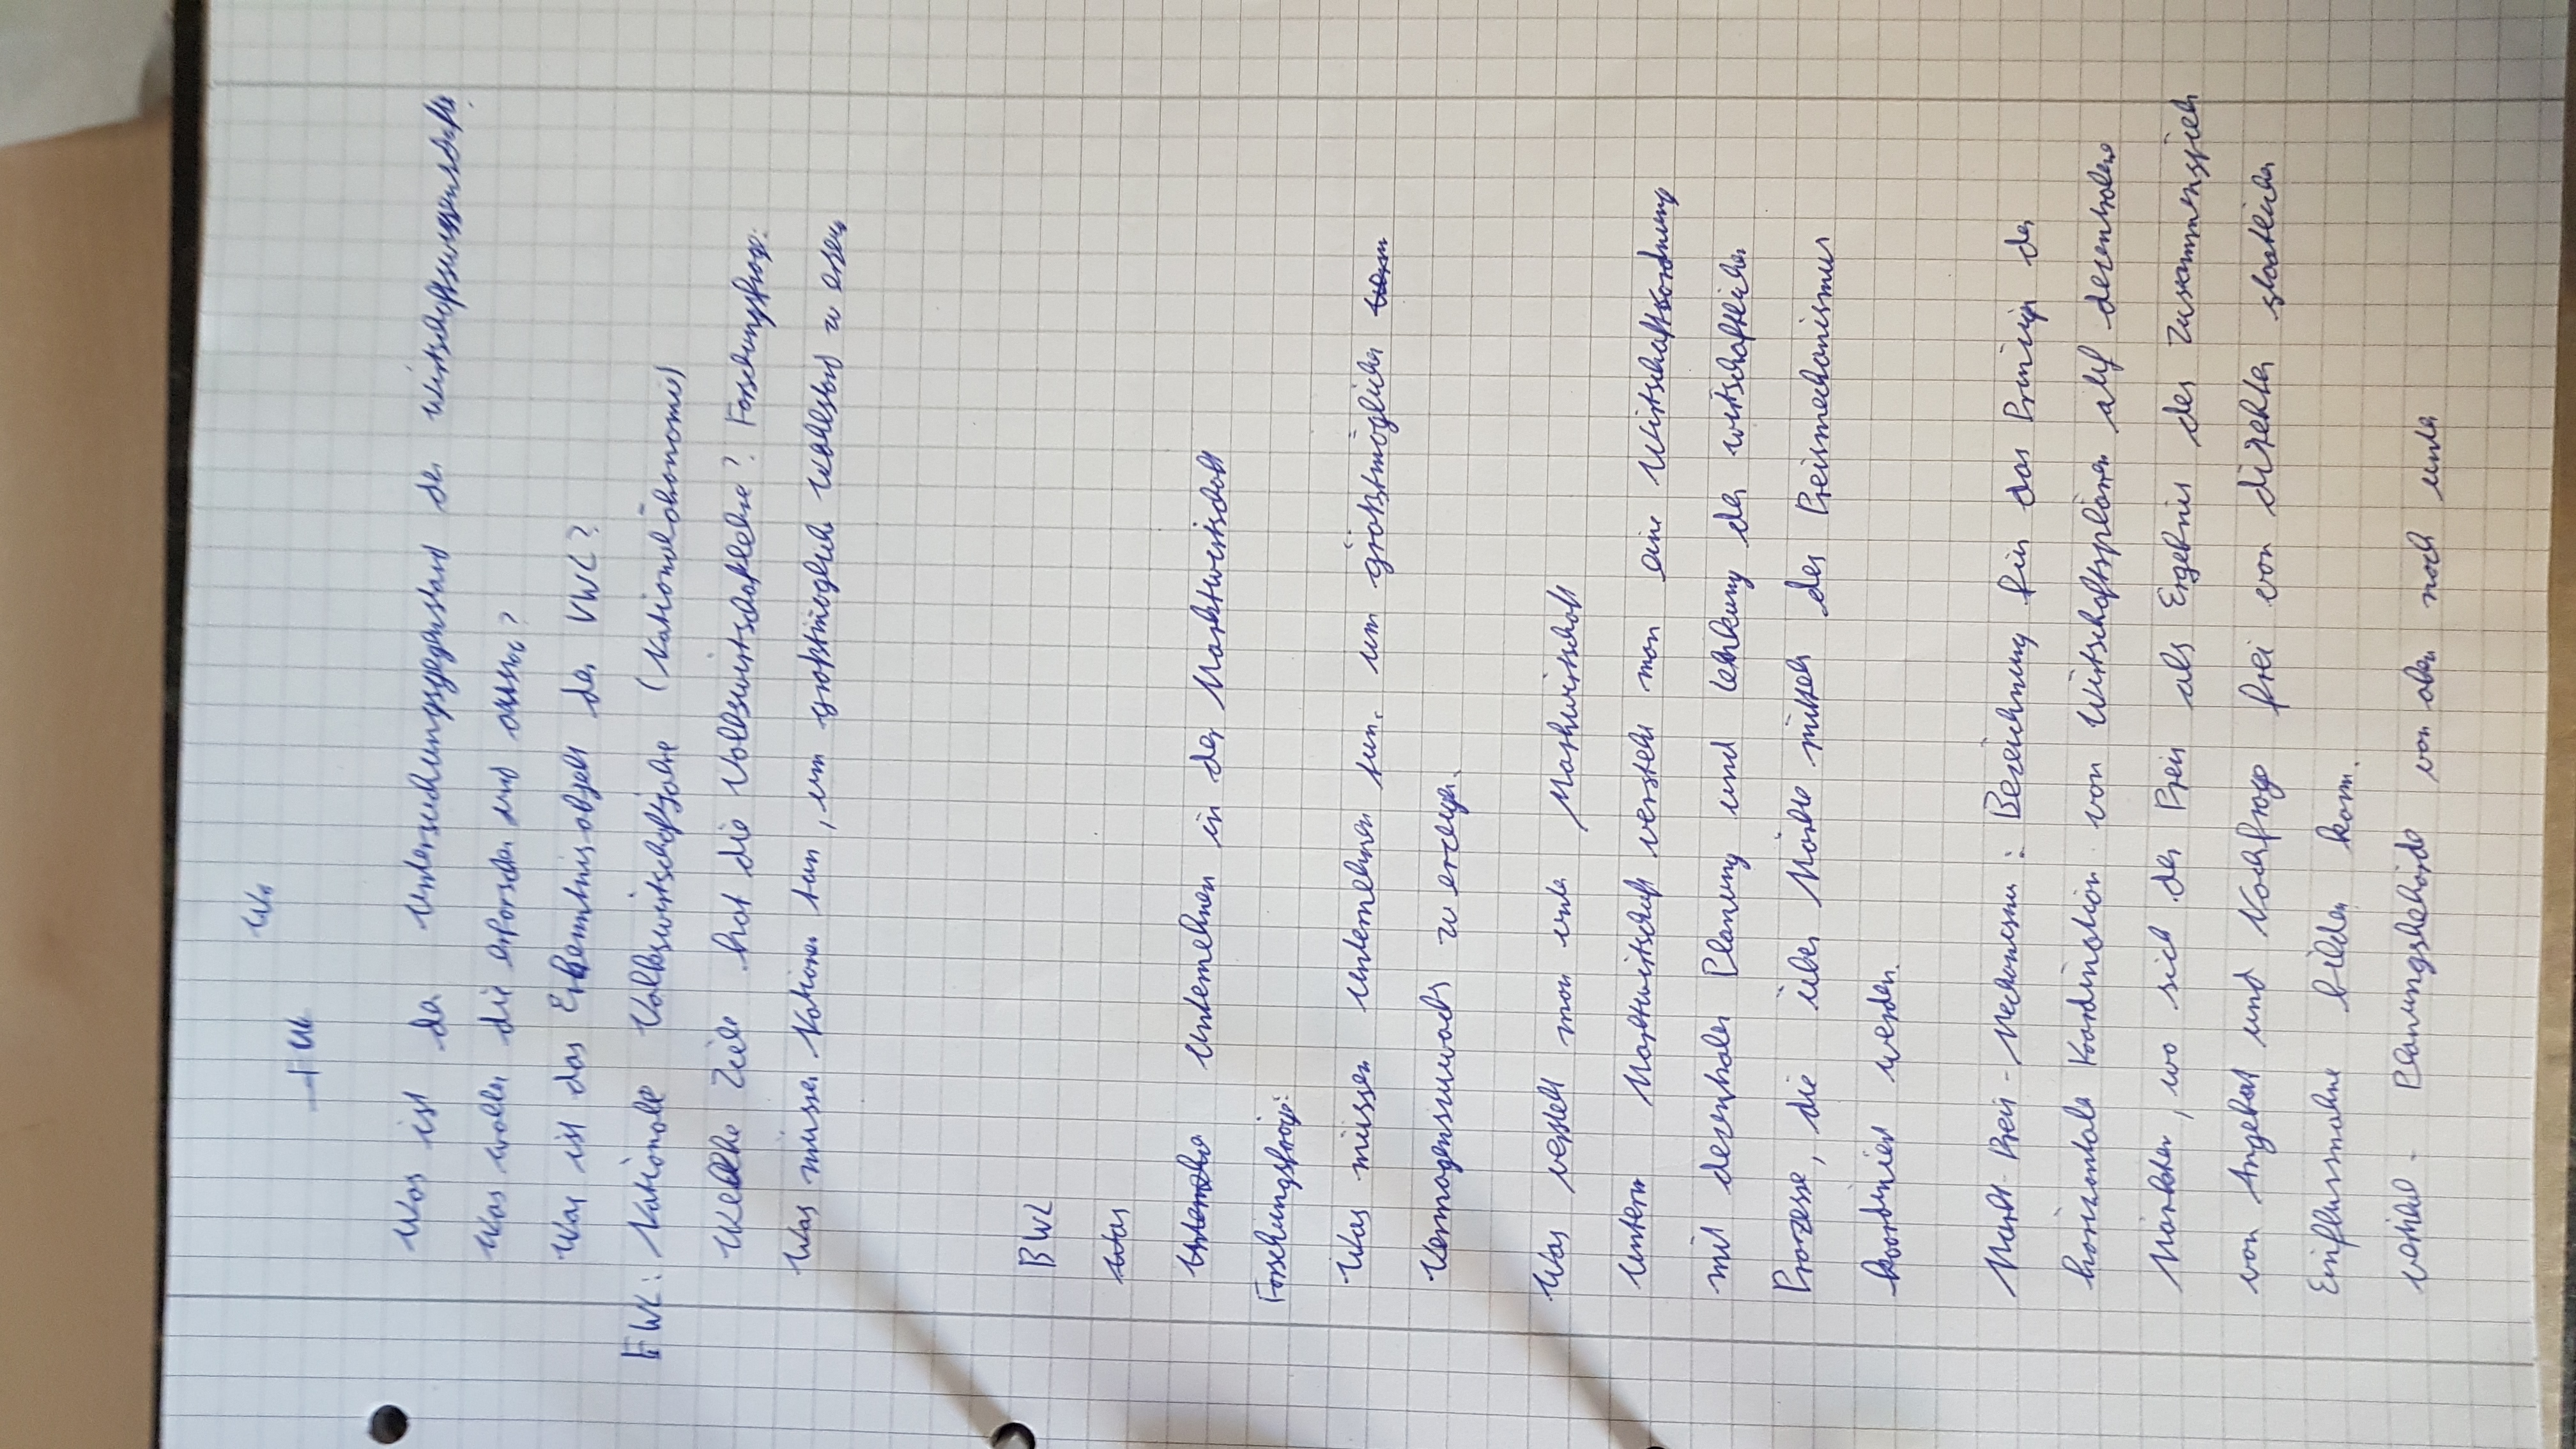 Wa
Was ist der Untersuchungsgegenstand der Wirtschaftswissenschaften
Was wollen die erforschen und
Was ist das Erkenntnisobjekt der VWL?
Nationale Volkswirtschaftslehre (Nationalökonomie)
Welche Ziele hat die Volkswirtschaftlehre? Forschungsfrage:
Was müssen Nationen tun, um größtmöglichen Wohlstand zu
BWL
Was
Unternehmen in der Marktwirtschaft
Forschungsfrage:
Was müssen Unternehmen tun, um größtmöglichen
Vermögenszuwachs zu erzeugen.
Was versteht man unter Marktwirtschaft
Unterm Marktwirtschaft versteht man eine Wirtschaftsordnung
mit dezentraler Planung und Lenkung der wirtschaftlichen
Prozesse, die über Märkte mittels des Preismechanismus
koordiniert werden.
Markt-Preis-Mechanismus: Bezeichnung für das Prinzip der
horizontalen Koordination von Wirtschaftsplänen auf dezentralen
Märkten, wo sich der Preis als Ergebnis des Zusammenspiels
von Angebot und Nachfrage frei von direkter staatlicher
Einflussnahme bilden kann.
vertikal - Planungsbehörde von oben nach unten